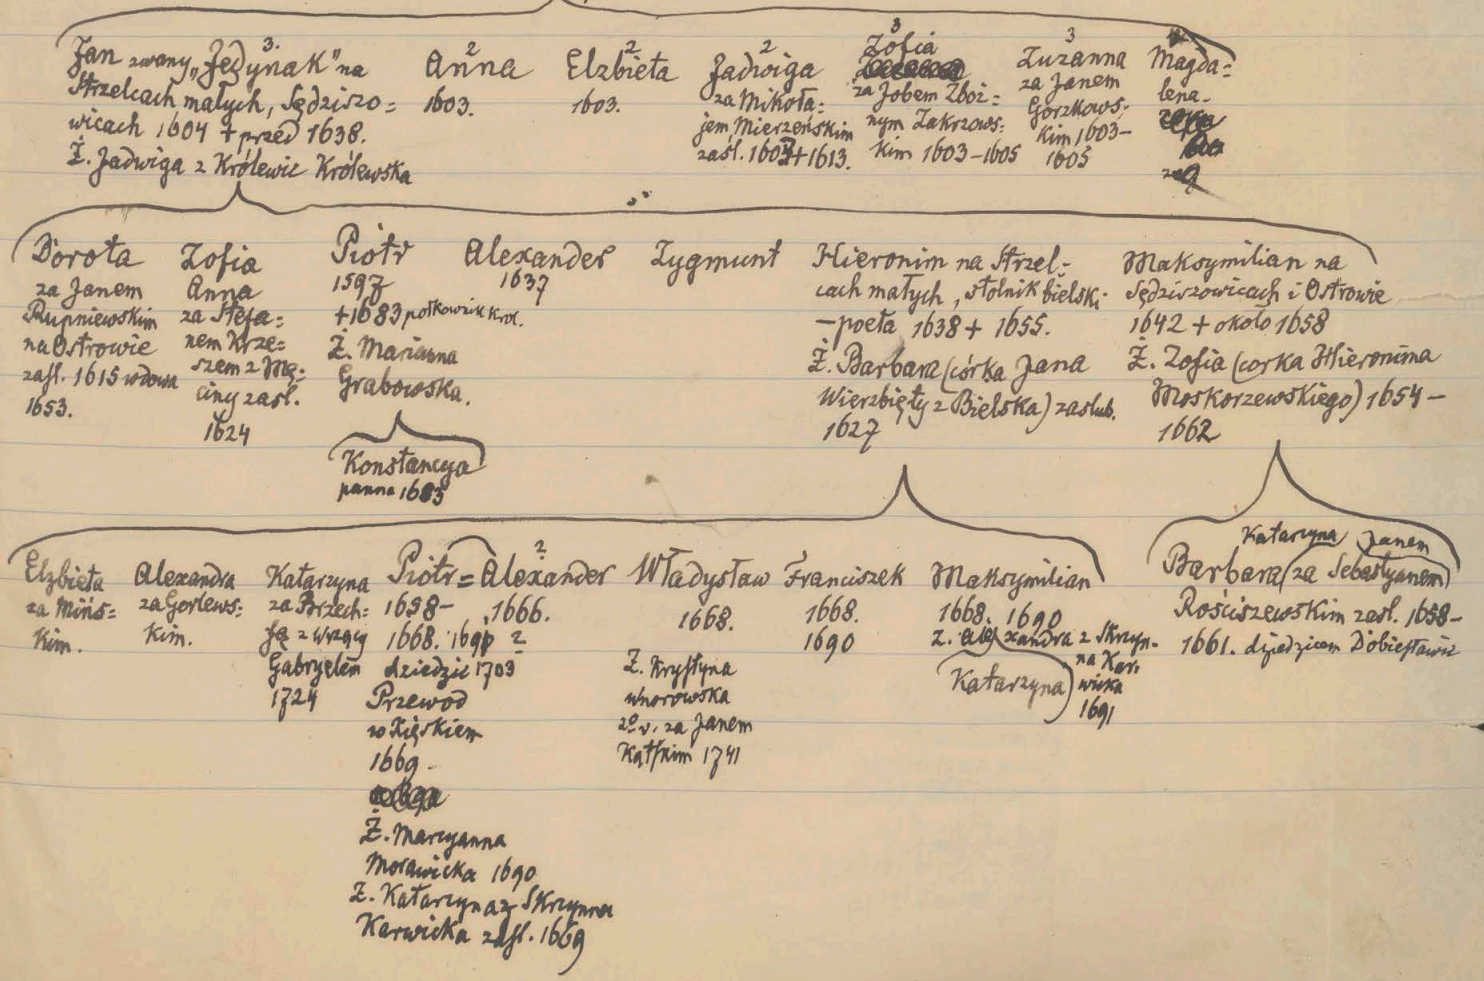 Jan zwany „Jędynak" na
Strzelcach małych, Sędziszo=
wicach 1604 + przed 1638.
Ż. Jadwiga z Królewic Królewska
3.
2
Anna
1603.
2
Elzbieta
1603.
2
Jadwiga
za Mikoła=
jem Mierzeńskim
zaśl. 1603 + 1613.
3
Zofia
za Jobem Zboż=
nym Zakrzows=
kim 1603-1605
3
Zuzanna
za Janem
Gorzkows=
kim 1603-
1605
Magda=
lena
Dorota
za Janem
Rupniewskim
na Ostrowie
zasl. 1615 wdowa
1653.
Zofia
Anna
za Stefa=
nem Krze=
szem z Mę=
ciny zasl.
1624
Piotr
1597
+1683 połkownik Krol.
Ż. Marianna
Grabowska.
Konstancya
panna 1683
Alexander
1637
Zygmunt
Hieronim na Strzel=
cach małych, stolnik bielski
-poeta 1638 + 1655.
Ż. Barbara (córka Jana
Wierzbięty z Bielska) zaslub.
1627
Maksymilian na
Sędziszowicach i Ostrowie
1642 + około 1658
Ż. Zofia (corka Hieronima
Moskorzewskiego) 1654-
1662
Elzbieta
za Mińs=
kim.
Alexandra
za Gorlews=
kim.
Katarzyna
za Brzech=
fą z Wrzący
Gabryelem
1724
Piotr =
1658-
1668.
dziedzic 1703
Przewod
w Xięskiem
1669
Ż. Maryanna
Morawicka 1690
Ż. Katarzyna z Skrzynna
Karwicka zasl. 1669
?
Alexander
1666.
?
Władysław
1668.
Ż. Krystyna
Wnorowska
2º v. za Janem
Kątskim 1741
Franciszek
1668.
1690
Maksymilian
1668. 1690
Ż. Alexandra z Skrzyn-
na Kar.
wicka
1691
Katarzyna
Katarzyna Janem
Barbara (za Sebastyanem)
Rościszewskim zasl. 1658-
1661. dziedzicem Dobiesławic